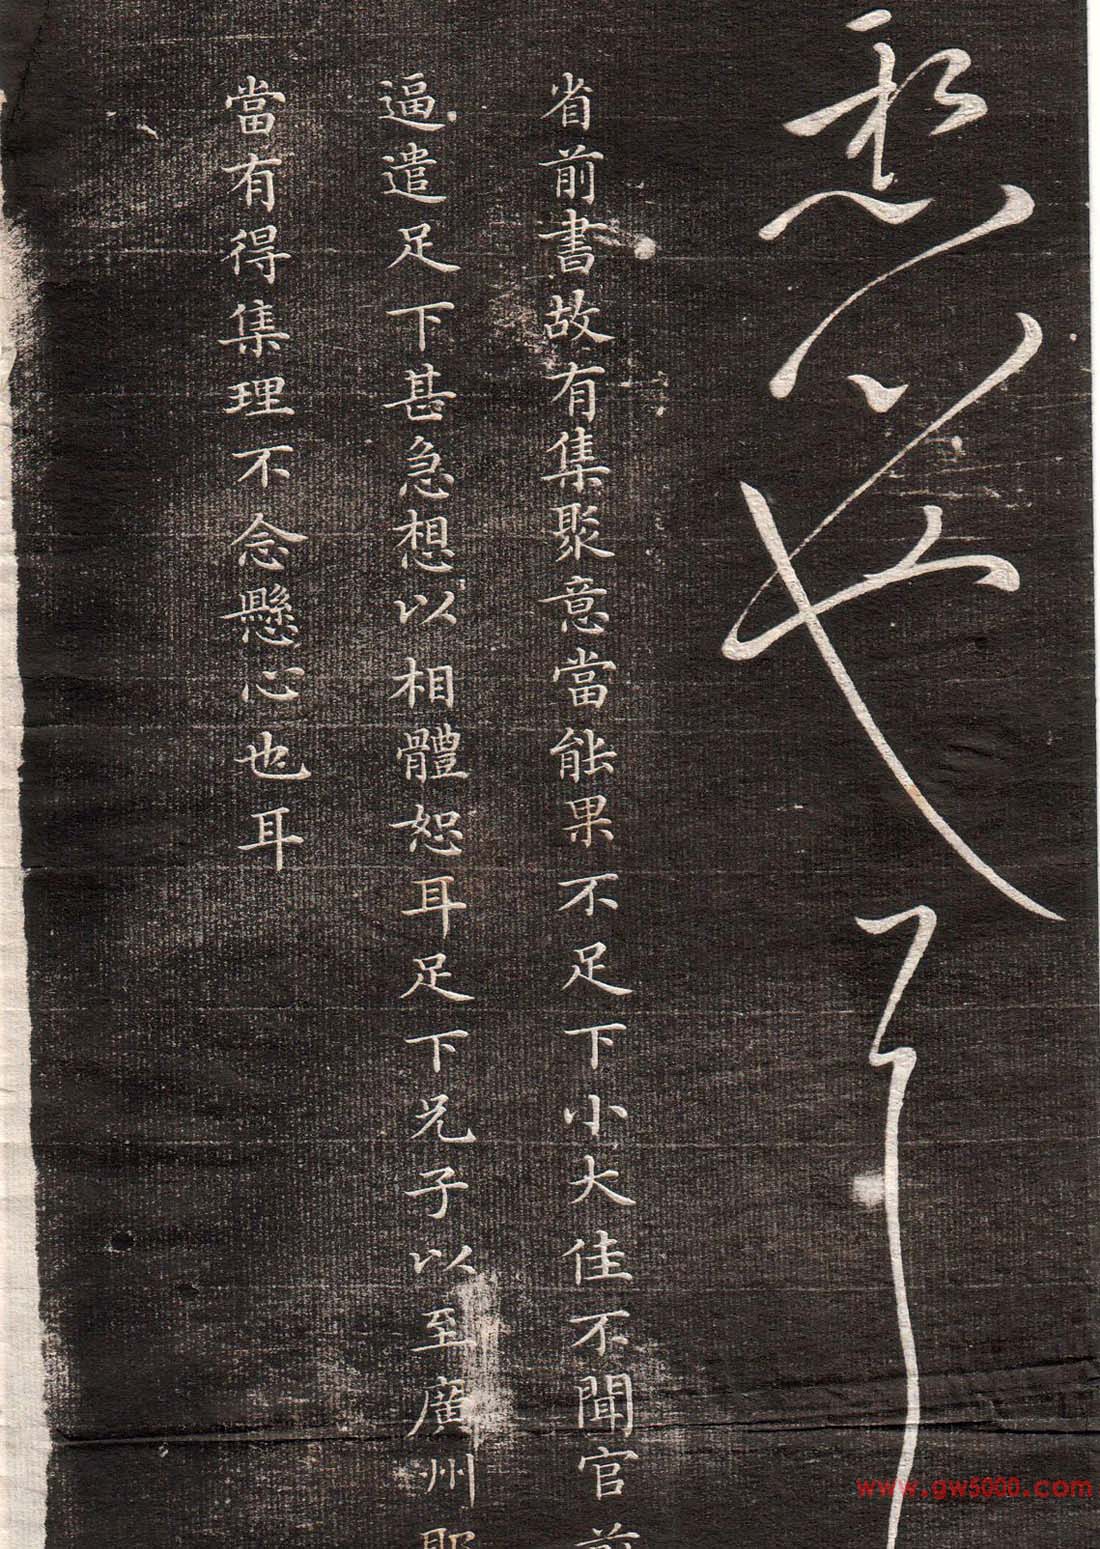 懸心也耳
省前書故有集聚意當能果不足下小大佳不聞官前
逼遣足下甚急想以相體恕耳足下兄子以至廣州耶
當有得集理不念懸心也耳
www.gw5000.com